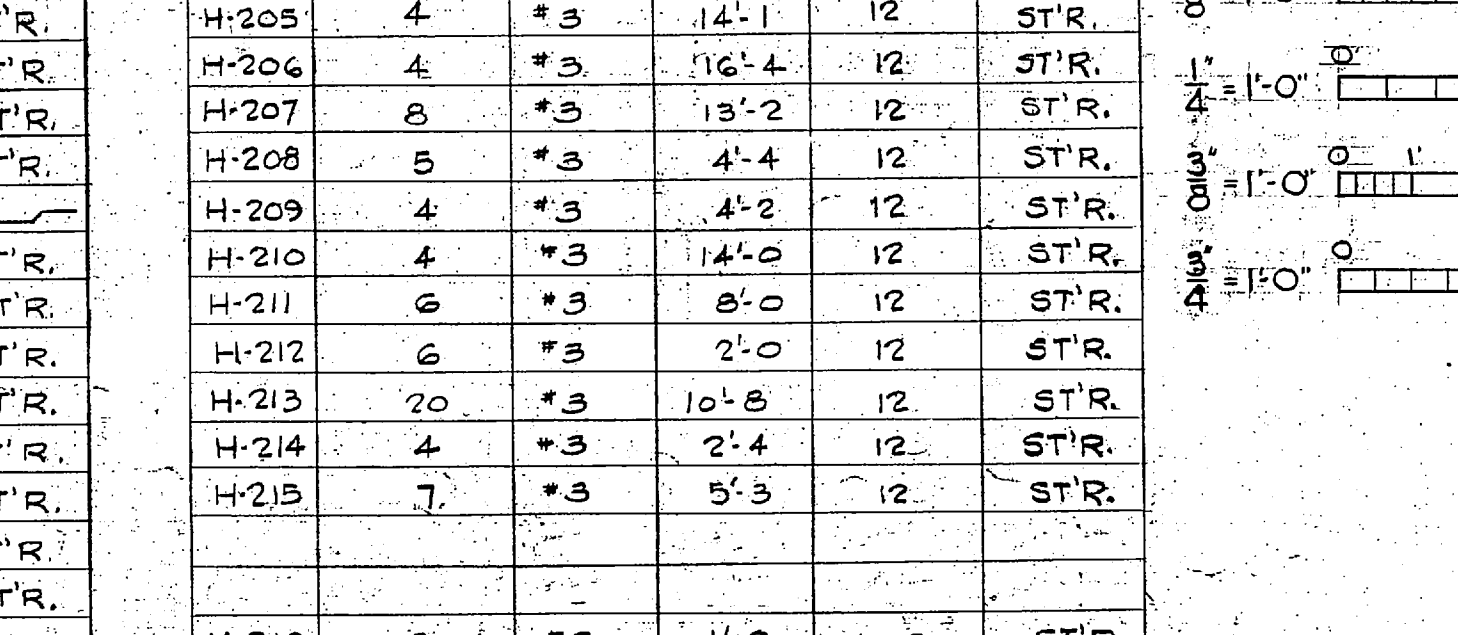 'R.
'R.
T'R.
'R.
'R.
T'R.
T'R.
T'R.
'R.
T'R.
'R
T'R.
H-205 4 #3 14'-1 12 ST'R.
H-206 4 #3 16'-4 12 ST'R.
H-207 8 #3 13'-2 12 ST'R.
H-208 5 #3 4'-4 12 ST'R.
H-209 4 #3 4'-2 12 ST'R.
H-210 4 #3 14'-0 12 ST'R.
H-211 6 #3 8'-0 12 ST'R.
H-212 6 #3 2'-0 12 ST'R.
H-213 20 #3 10'-8 12 ST'R.
H-214 4 #3 2'-4 12 ST'R.
H-215 7 #3 5'-3 12 ST'R.
1/4" = 1'-0" 0
3/8" = 1'-0" 0 1'
3/4" = 1'-0" 0